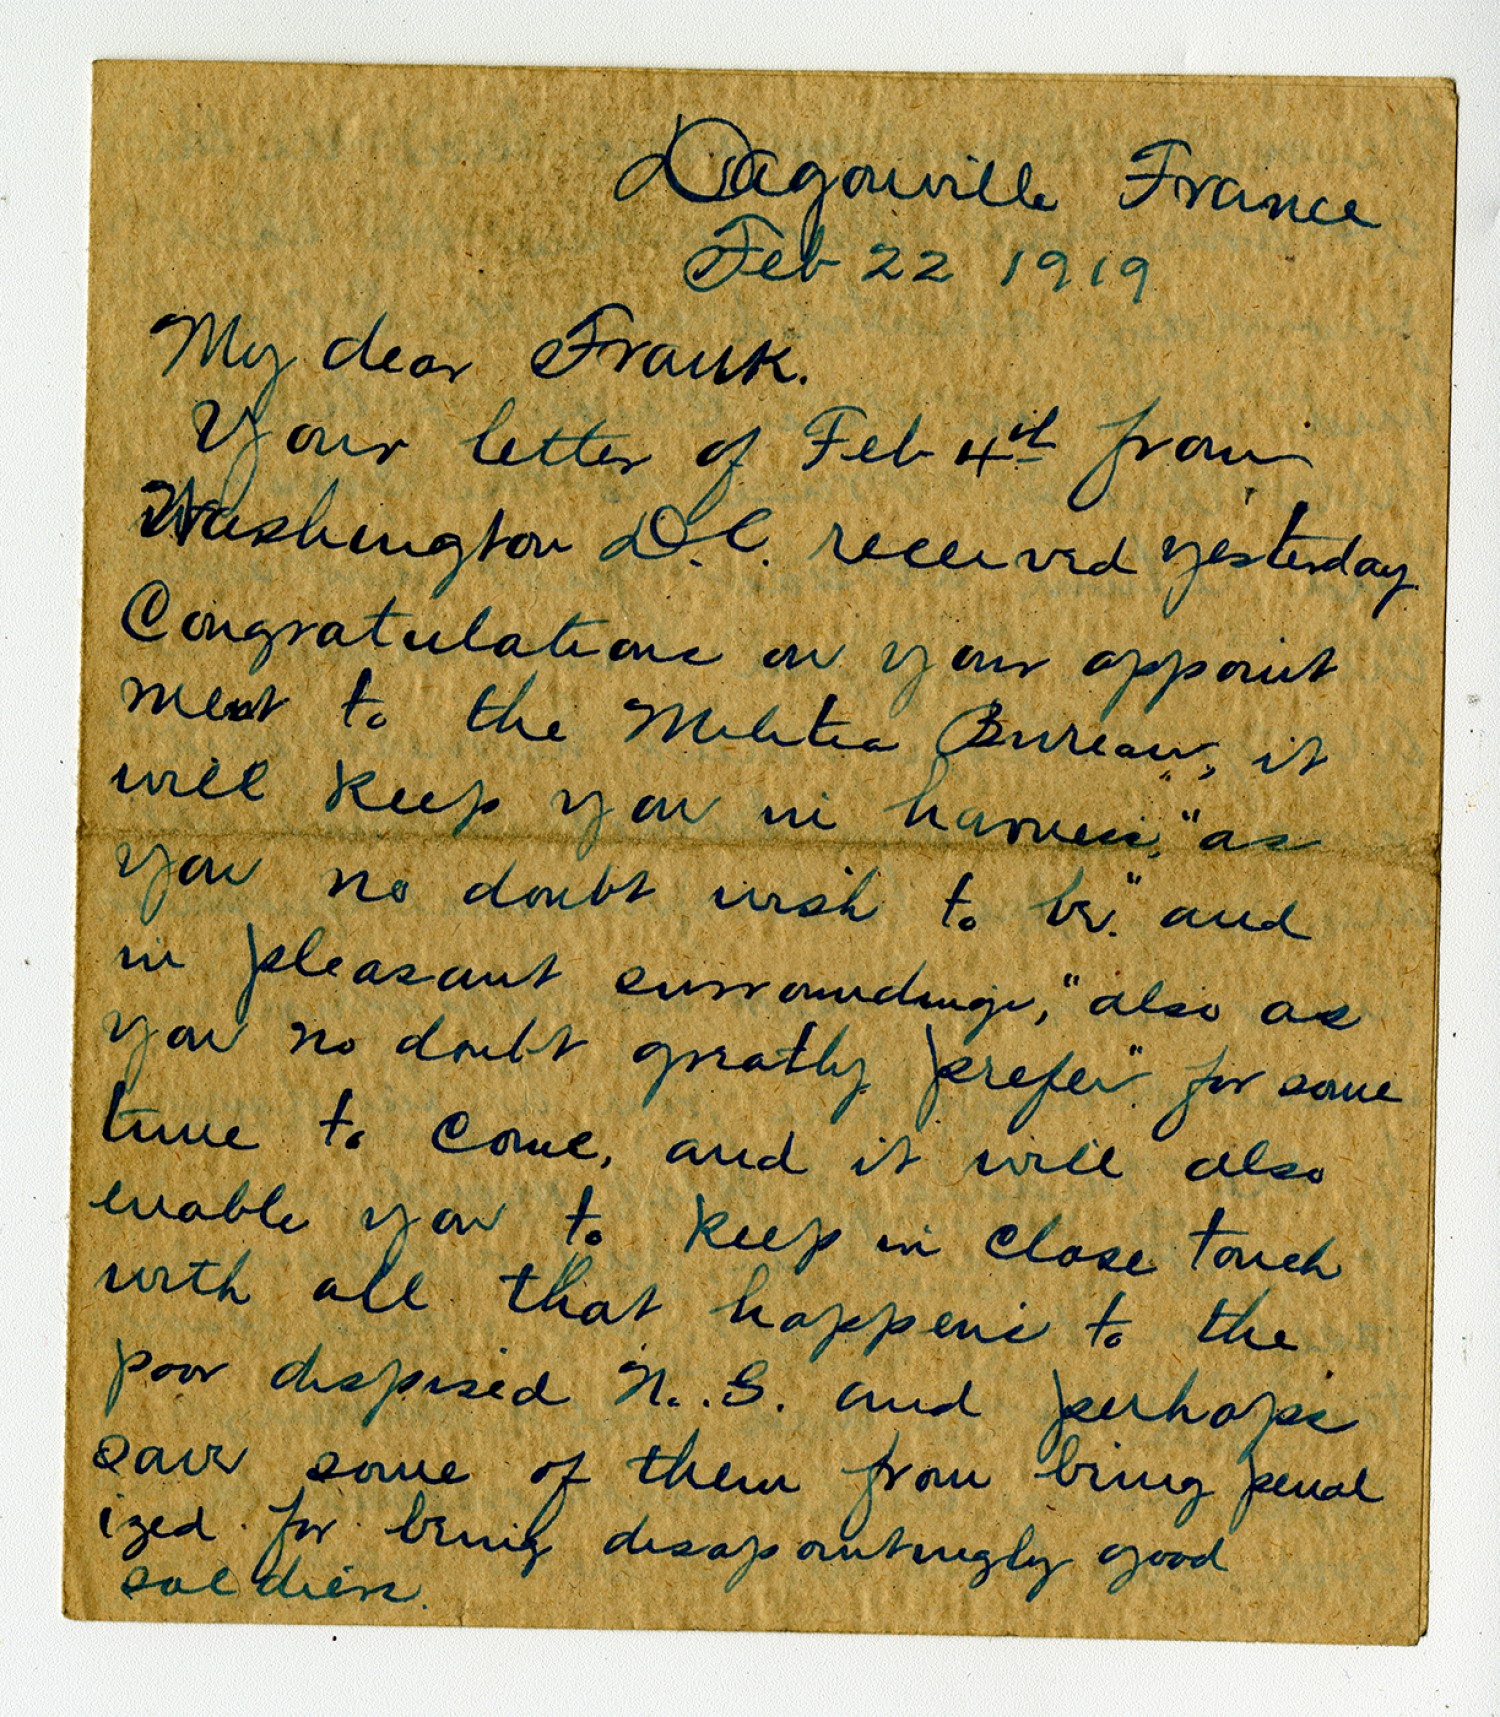 Dagonville France
Feb 22 1919
My dear Frank.
Your letter of Feb 4th from
Washington D.C. received yesterday.
Congratulations on your appoint
ment to the Militia Bureau, it
will keep you in harness, "as
you no doubt wish to be." and
in pleasant surroundings, "also as
you no doubt greatly prefer" for some
time to come, and it will also
enable you to keep in close touch
with all that happens to the
poor despised N.G. and perhaps
save some of them from being penal
ized for being disapointingly good
soldiers.